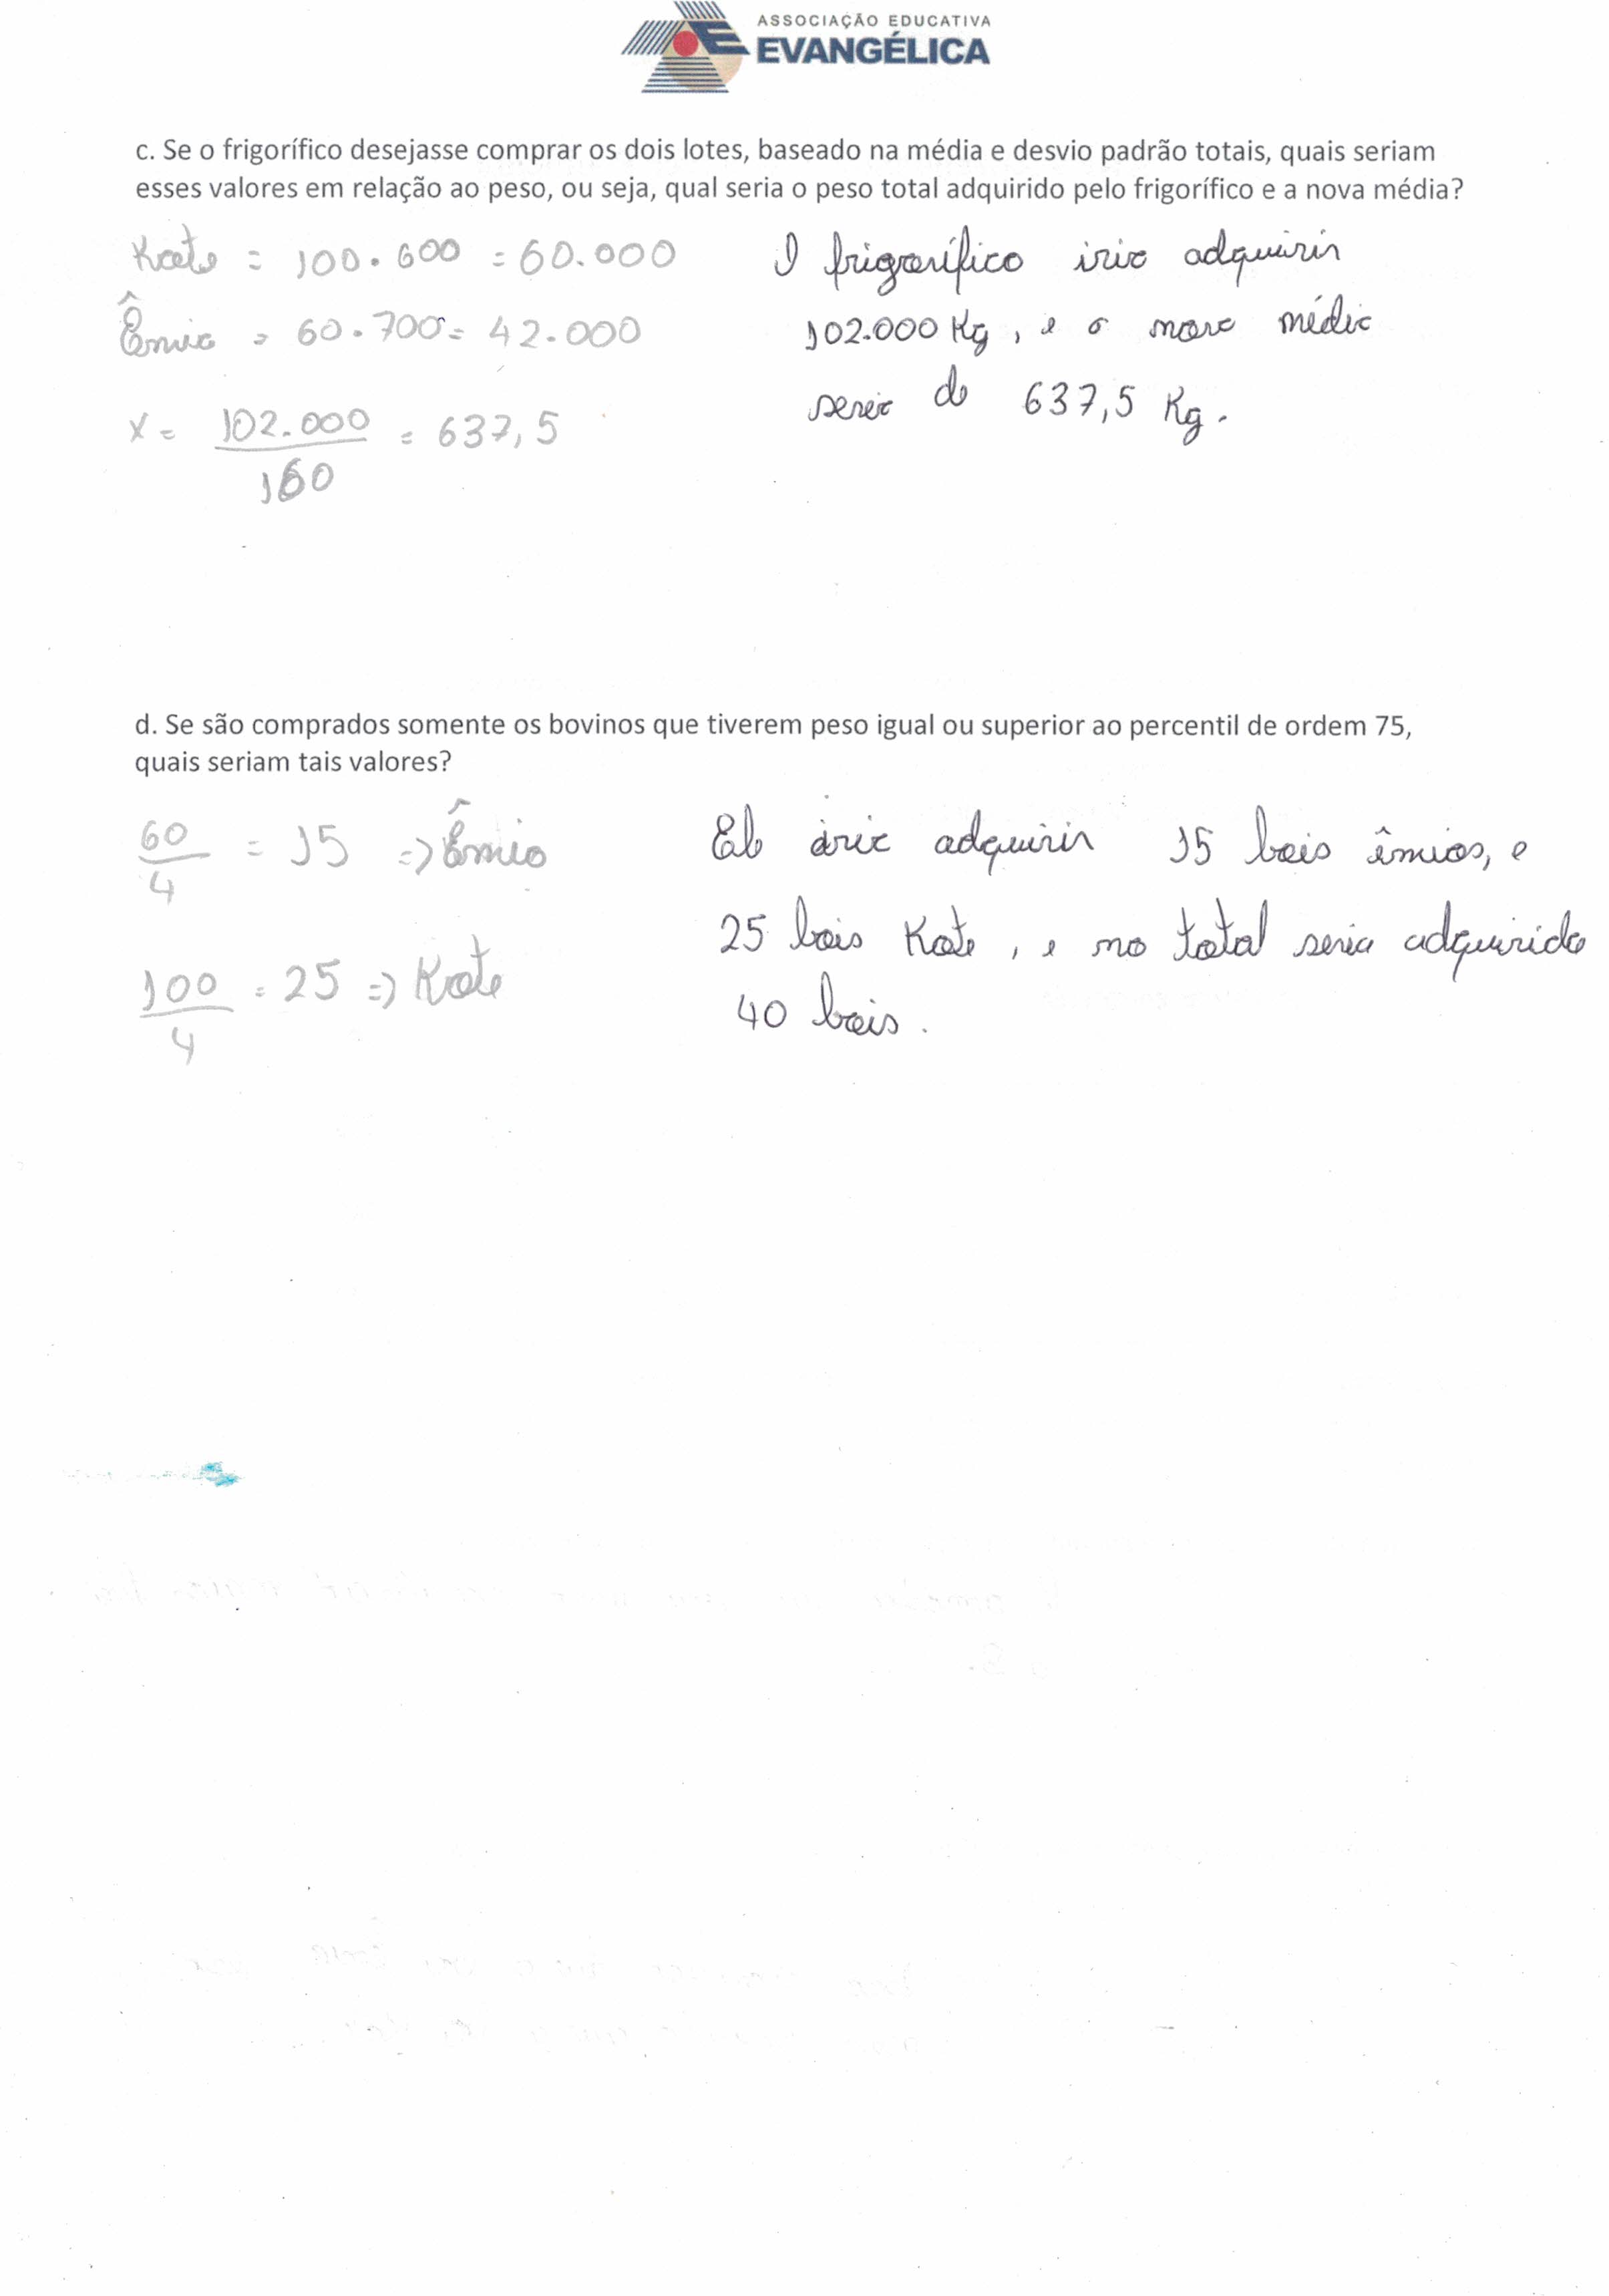 ASSOCIAÇÃO EDUCATIVA
EVANGÉLICA
c. Se o frigorífico desejasse comprar os dois lotes, baseado na média e desvio padrão totais, quais seriam
esses valores em relação ao peso, ou seja, qual seria o peso total adquirido pelo frigorífico e a nova média?
Kate = 100.600 = 60.000
Êmio = 60.700 = 42.000
X = 102.000 = 637,5
160
O frigorífico iria adquirir
102.000 Kg, e a nova média
seria de 637,5 Kg.
d. Se são comprados somente os bovinos que tiverem peso igual ou superior ao percentil de ordem 75,
quais seriam tais valores?
60 = 15 => Êmio
4
100 = 25 => Kate
4
Ele iria adquirir 15 bois êmios, e
25 bois Kate, e no total seria adquirido
40 bois.